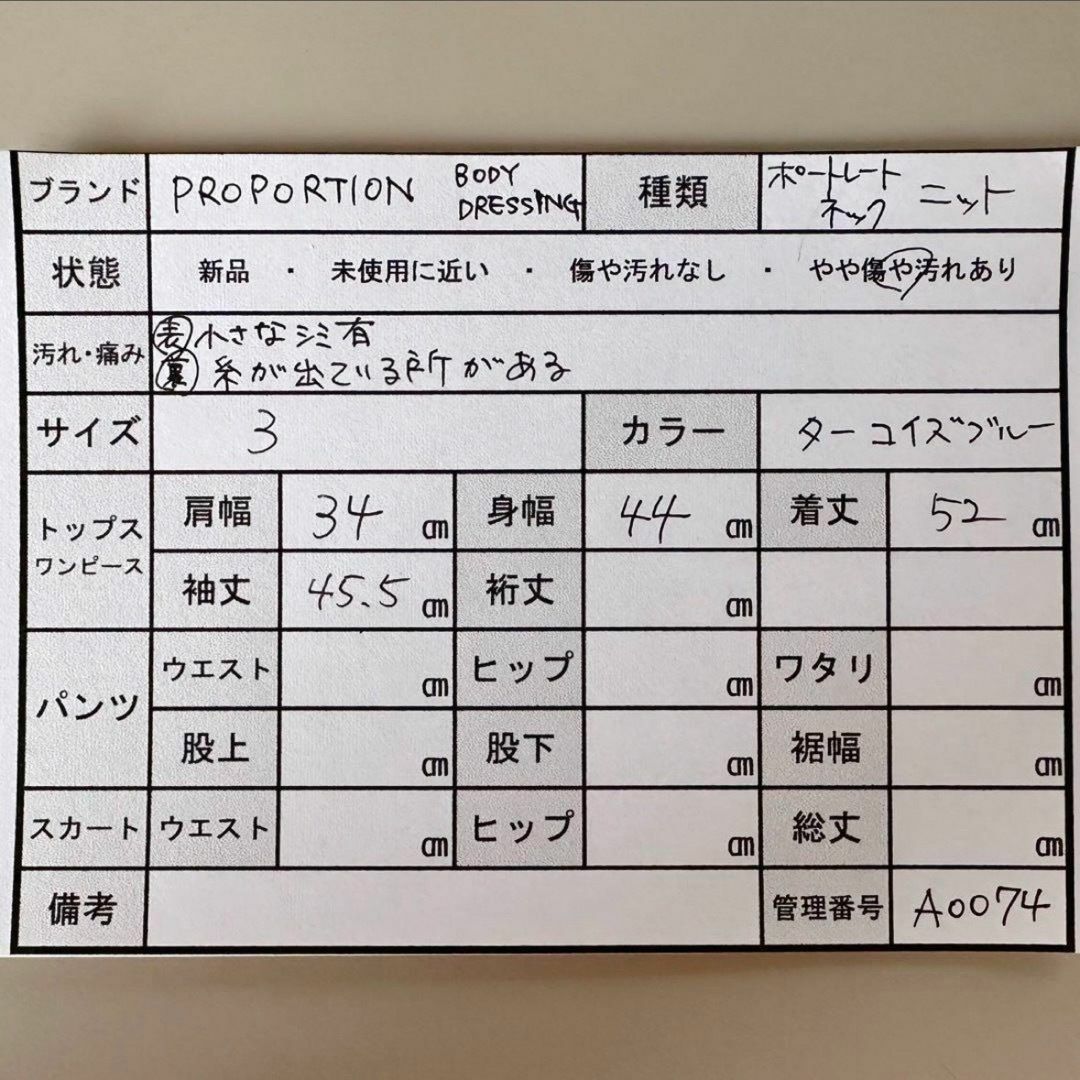 ブランド PROPORTION BODY DRESSING 種類 ポートレートネック ニット
状態 新品 ・ 未使用に近い ・ 傷や汚れなし ・ やや傷や汚れあり
汚れ・痛み 表 小さなシミ有
裏 糸が出ている所がある
サイズ 3 カラー ターコイズブルー
トップス ワンピース 肩幅 34 cm 身幅 44 cm 着丈 52 cm
袖丈 45.5 cm 裄丈 cm
パンツ ウエスト cm ヒップ cm ワタリ cm
股上 cm 股下 cm 裾幅 cm
スカート ウエスト cm ヒップ cm 総丈 cm
備考 管理番号 A0074